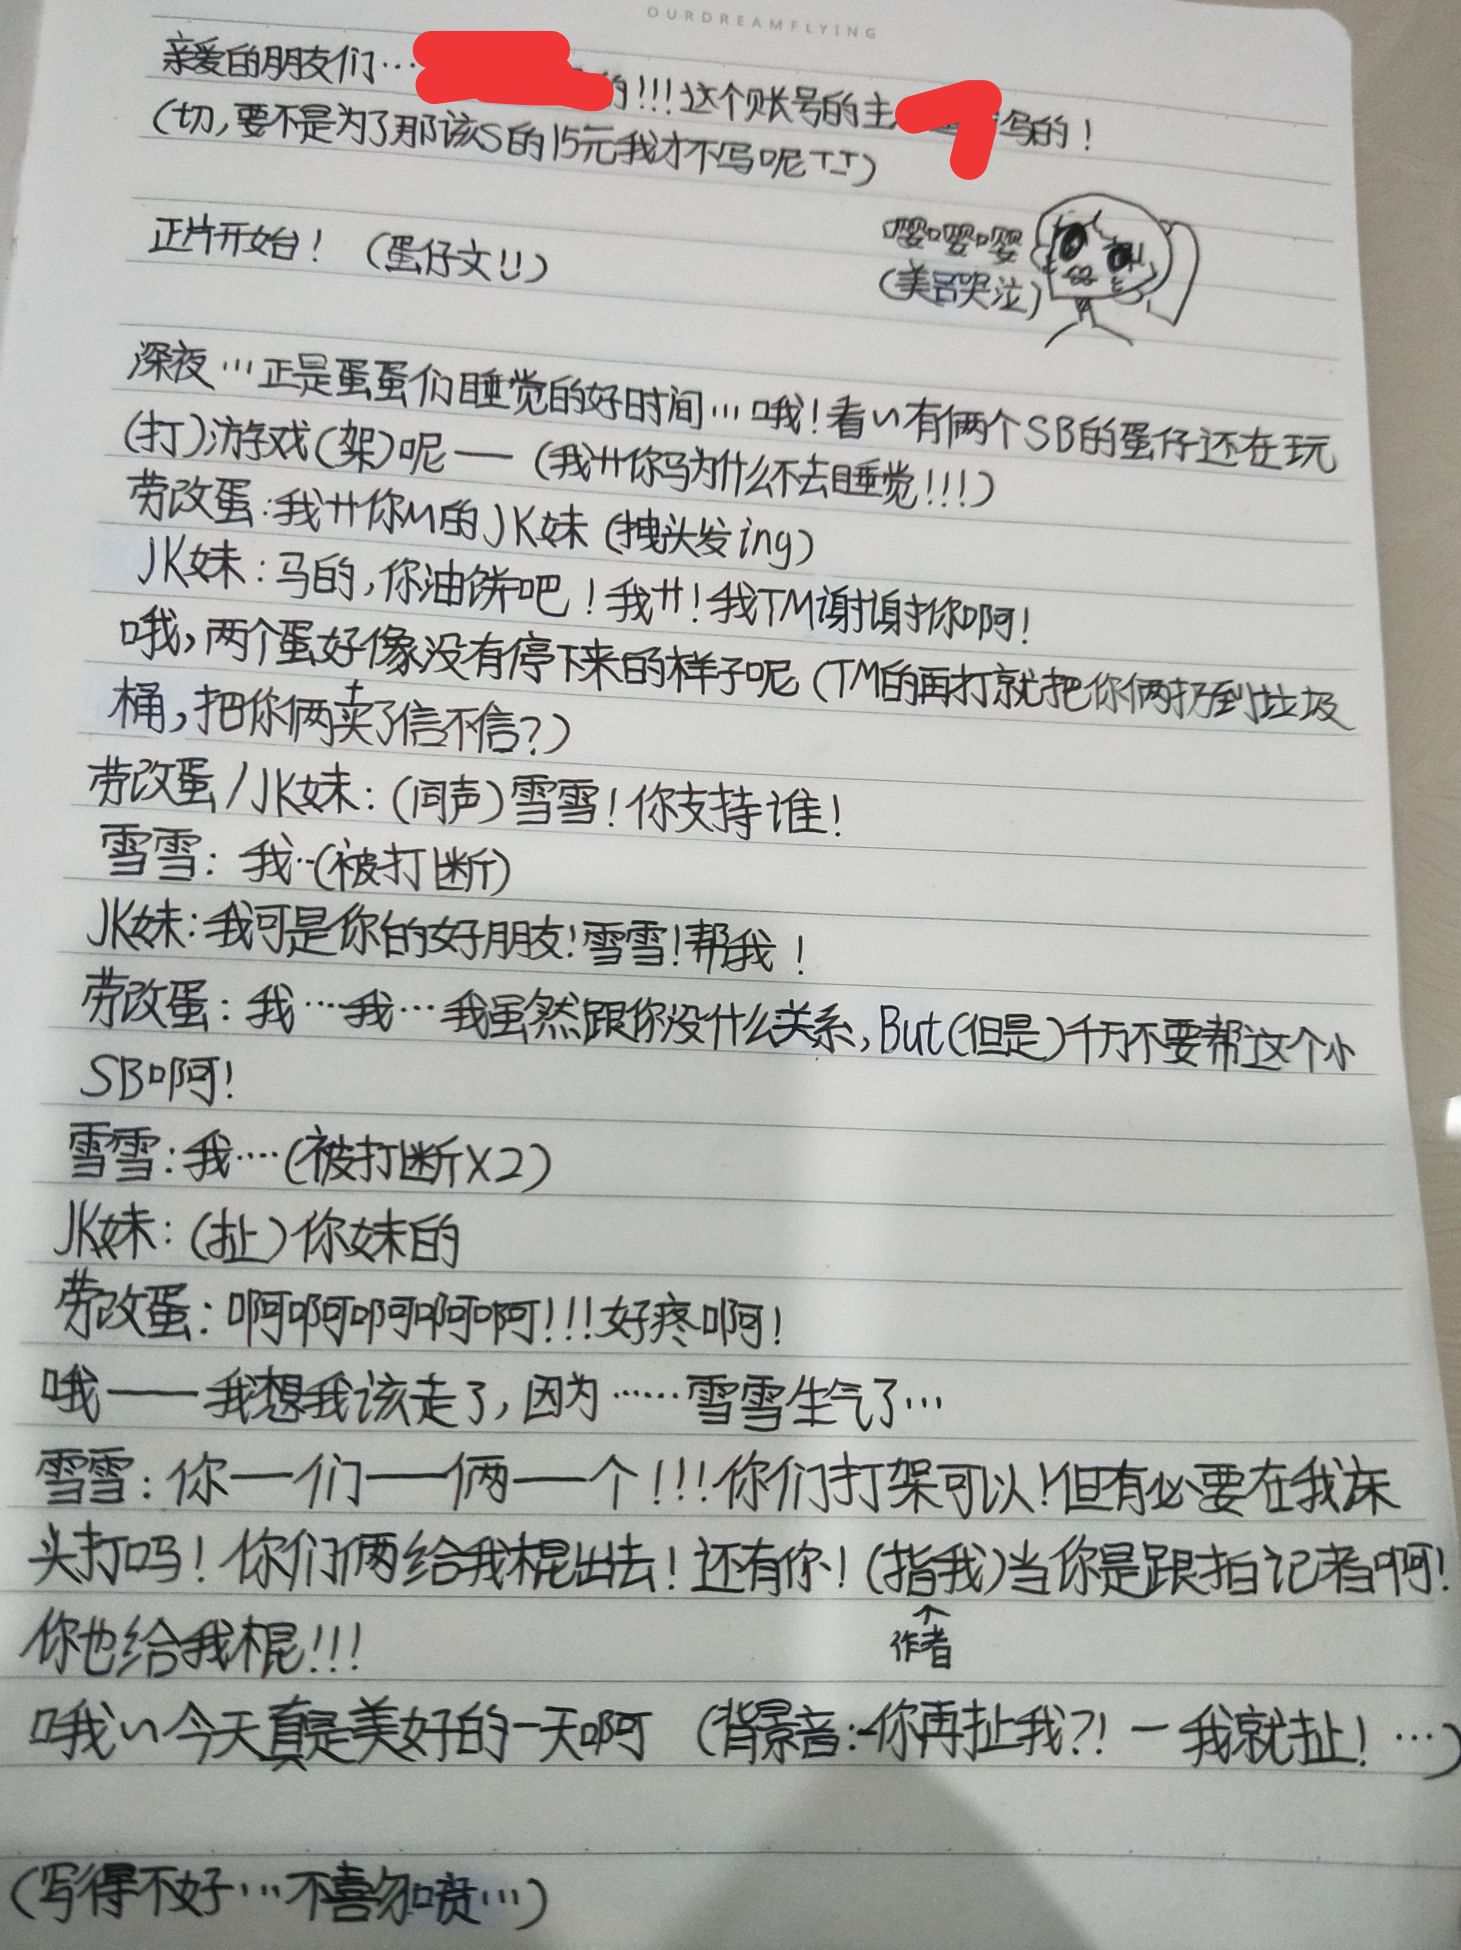 OURDREAMFLYING
亲爱的朋友们… 的!!!这个账号的主 写的!
(切,要不是为了那该S的15元我才不写呢T_T)
嘤嘤嘤
(美名哭泣)
正片开始!(蛋仔文!!)
深夜…正是蛋蛋们睡觉的好时间…哦!看~有俩个SB的蛋仔还在玩
(打)游戏(架)呢——(我艹你马为什么不去睡觉!!!)
劳改蛋:我艹你M的JK妹(拽头发ing)
JK妹:马的,你油饼吧!我艹!我TM谢谢你啊!
哦,两个蛋好像没有停下来的样子呢(TM的再打就把你俩扔到垃圾
桶,把你俩卖了信不信?)
劳改蛋/JK妹:(同声)雪雪!你支持谁!
雪雪:我…(被打断)
JK妹:我可是你的好朋友!雪雪!帮我!
劳改蛋:我…我…我虽然跟你没什么关系,But(但是)千万不要帮这个小
SB啊!
雪雪:我…(被打断X2)
JK妹:(扯)你妹的
劳改蛋:啊啊啊啊啊!!!好疼啊!
哦——我想我该走了,因为……雪雪生气了…
雪雪:你—们——俩—个!!!你们打架可以!但有必要在我床
头打吗!你们俩给我棍出去!还有你!(指我)当你是跟拍记者啊!
作者
你也给我棍!!!
哦~今天真是美好的一天啊 (背景音:-你再扯我?!-我就扯!…)
(写得不好…不喜勿喷…)